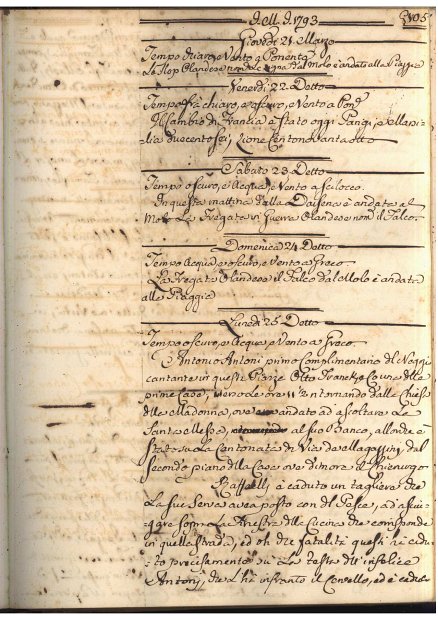 dell. d. 1793
305
Giovedì 21. Marzo
Tempo chiaro, e Vento a Ponente
Lo Slop Olandese nom. Le dal Molo è andato alla Piaggia
Venerdì 22 Detto
Tempo frà chiaro, e oscuro, e Vento a Pon.e
Il Cambio di Francia è stato oggi Parigi, e
lia duecento sei, Lione Cento novanta otto
Sabato 23 Detto
Tempo oscuro, e Acqua, e Vento a Scilocco.
In questa mattina dalla Darsena è andata al
Molo La Fregata di Guerra Olandese nom. il Falco.
Domenica 24 Detto
Tempo Acqua, e oscuro, e Vento a Greco
La Fregata Olandese il Falco dal Molo è andata
alla Piaggia
Lunedì 25 Detto
Tempo oscuro, e Acqua, e Vento a Greco.
Antonio Antoni primo Complimentario del Nego
cantante in questa Piazza Otto Franck, e C. una delle
prime Case, verso le ore 11 1/2 ritornando dalla Chiesa
della Madonna, ove andato ad ascoltare La
Santa Messa, al suo Banco, allorchè è
stato su la Cantonata di Via de Magazzini dal
Secondo piano della Casa ove dimora il Chirurgo
Raffaelli è caduto un tagliere che
La sua Serva avea posto con del Pesce, ad asciu-
gare sopra La finestra della Cucina che corrisponde
in quella strada, ed oh che fatalità questi è cadu-
to precisamente su La testa dell' infelice
Antonj, che L'hà infranto il Cervello, ed è caduto